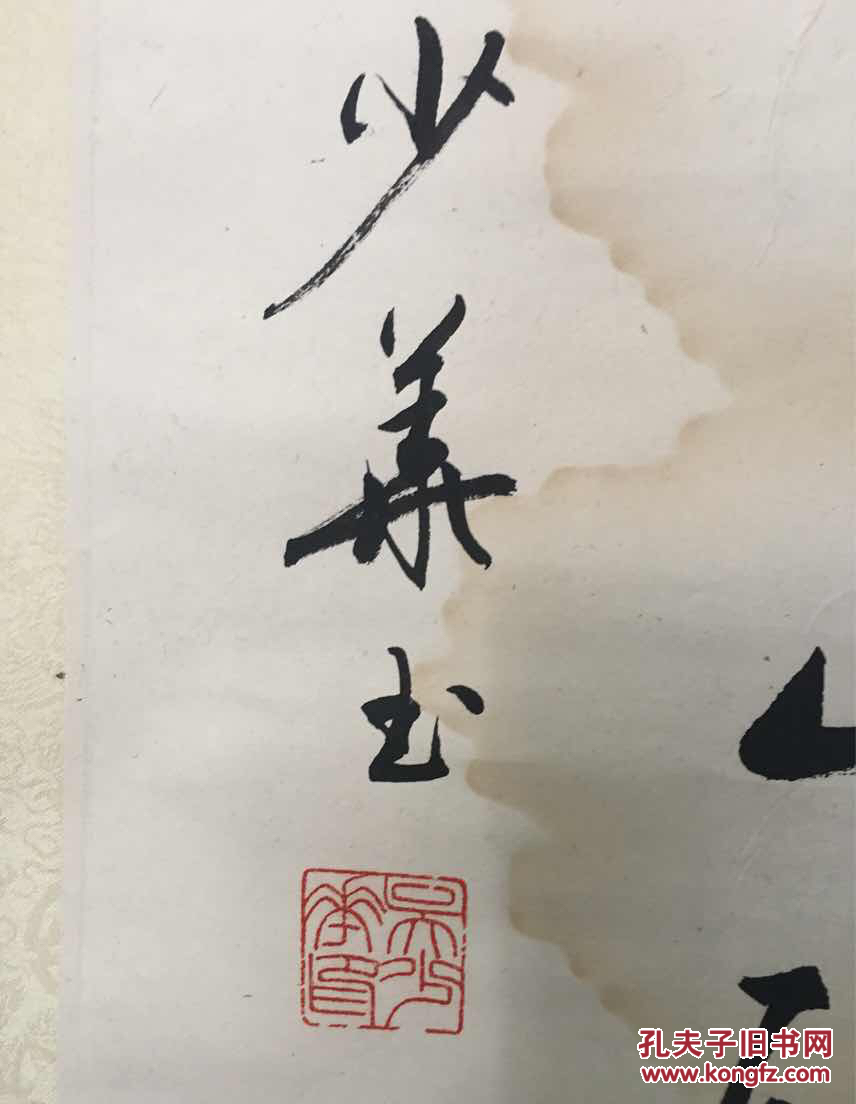 少華書
吳少
華印
孔夫子旧书网
www.kongfz.com